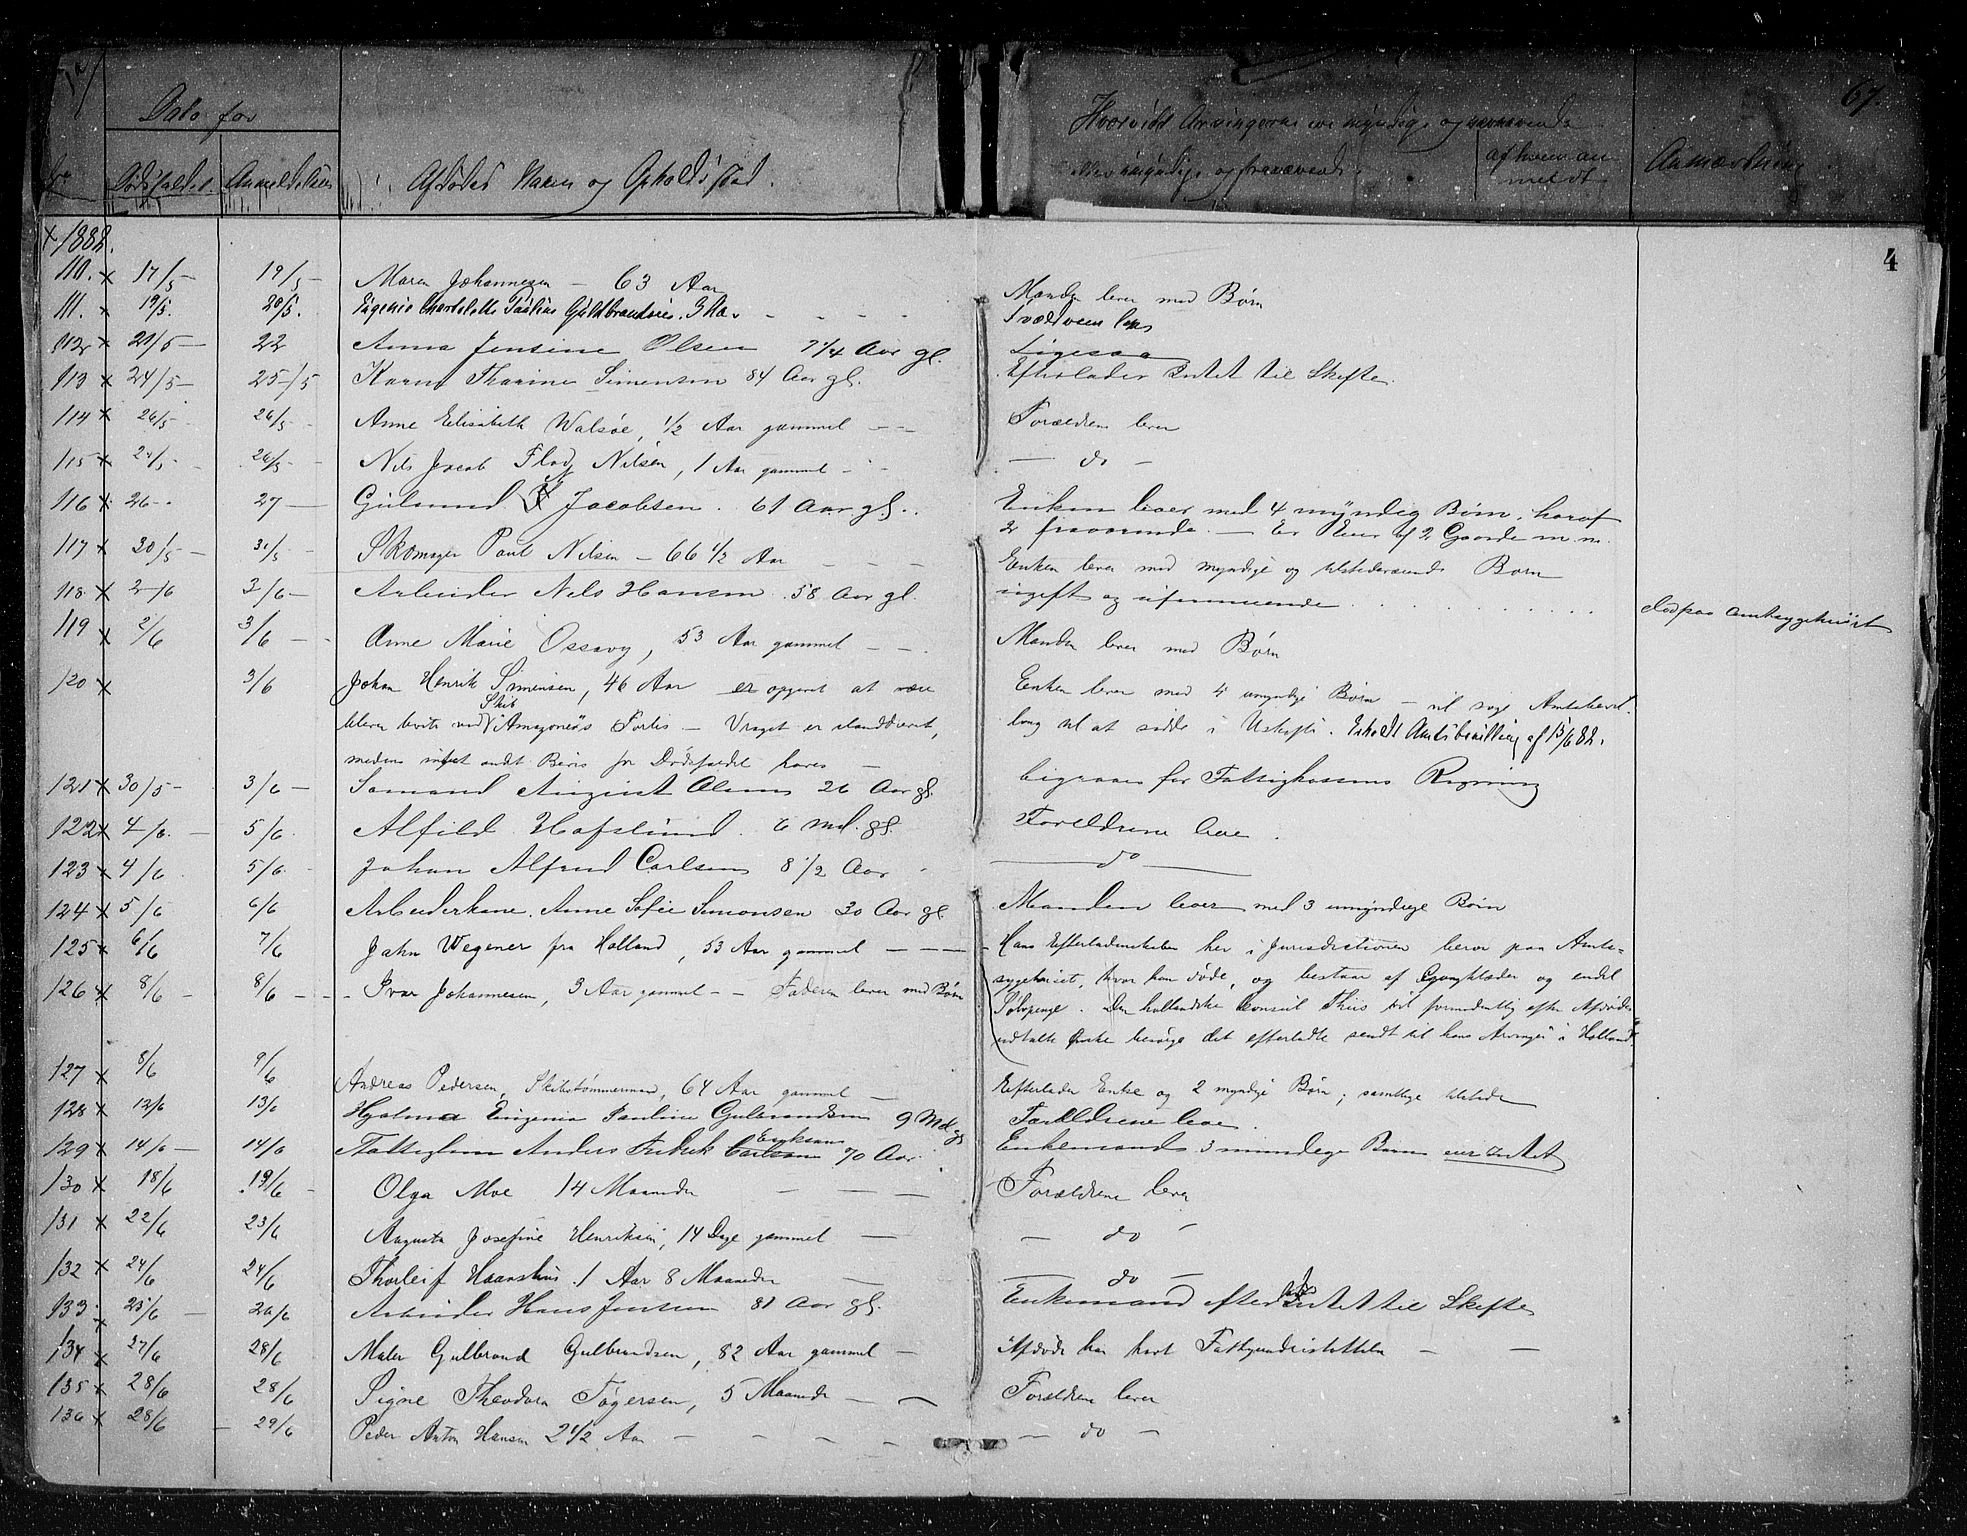 67.
Dato for
Hvorvidt Arvingerne ere myndige og nærværende
eller umyndige og fraværende.
af hvem an
meldt
Anmærkning
No
Dødsfaldet.
Anmeldelsen
Afdødes Navn og Opholdssted.
4
x 1882.
110. x 17/5 - 19/5 - Maren Johannesen - 63 Aar
Manden lever med Børn
111. x 19/5. 20/5. Eugenie Gulbrandsens. 3 - - - -
112 x 21/5 - 22 Anna Jensine Olsen 7 1/4 Aar gl.
Ligesaa
113 x 24/5 - 25/5 Karen Thorine Simensen 84 Aar gl.
Efterlader Intet til Skifte.
114 x 26/5 - 26/5 - Anne Elisabeth Walsøe, 1/2 Aar gammel - -
Forældrene lever
115 x 26/5 - Nils Jacob Flod Nilsen, 1 Aar gammel - -
- do -
116 x 26 - 27 - Gulmund Jacobsen. 61 Aar gl.
Enken lever med 4 myndig Børn, hvoraf
2 fraværende. - Er Eier af 2 Gaarde m. m.
117 x 30/5 - 31/5 Skomager Paul Nilsen - 66 1/2 Aar - - -
Enken lever med myndige og tilstedeværende Børn
118. x 2/6 3/6 - Arbeider Nils Hansen. 58 Aar gl.
ugift og uformuende . . . . . . . .
død paa Amtssygehuset
119 x 2/6 3/6 - - Anne Marie Ossavy, 53 Aar gammel - - .
Manden lever med Børn
120 x 3/6 Johan Henrik Simensen, 46 Aar er opgivet at være
Enken lever med 4 umyndige Børn - vil søge Amtsbevil-
Skib
bleven borte ved "Amazones"s Forlis - Vraget er ilanddrevet,
ling til at sidde i Uskifte. Erholdt Amtsbevilling af 15/6 82.
medens intet andet Bevis for Dødsfaldet haves -
121 x 30/5 - 3/6 - August Olsen 26 Aar gl.
begraves for Fattigkassens Regning
122 x 4/6. - 5/6. Alfild Hafslund. 6 Md. gl.
Forældrene leve .
123 x 4/6 5/6. Johan Alfred Carlsen 8 1/2 Aar
do
124 x 5/6 6/6 Arbeiderkone. Anne Sofie Simonsen 30 Aar gl
Manden lever med 3 umyndige Børn
125 x 6/6 7/6 John Wegener fra Holland, 53 Aar gammel - - - -
Hans Efterladenskaber her i Jurisdictionen beror paa Amts-
126 x 8/6 - 8/6 - - - Ivar Johannesen, 3 Aar gammel - - Faderen lever med Børn
sygehuset, hvor han døde, og bestaar af Gangklæder og endel
Sølvpenge. Den hollandske Consul Thiis vil formodentlig efter Afdødes
udtalte Ønske besørge det efterladte sendt til hans Arvinger i Holland.
127 x 8/6 9/6 Andreas Pedersen, Skibstømmermand, 64 Aar gammel -
Efterlader Enke og 2 myndige Børn; samtlige tilstede
128 x 12/6 13/6 Hjalma Eugenia Pauline Gulbrandsen 9 Md gl
Forældrene leve.
Eriksen
129 x 14/6 - 14/6 Fattiglem Anders Fredrik Carlsen 70 Aar.
Enkemand 3 myndige Børn eier Intet
130 x 18/6 19/6 - Olga Moe 14 Maaneder - - -
Forældrene lever
131 x 22/6 23/6 Augusta Josefine Henriksen, 14 Dage gammel -
- do -
132 x 24/6 24/6 Thorleif Haanshus. 1 Aar 8 Maaneder -
- do -
133. x 25/6 - 26/6 Arbeider Hans Jensen 81 Aar gl.
Enkemand efterl. Intet til Skifte
134 x 27/6 28/6 Maler Gulbrand Gulbrandsen, 82 Aar gammel -
Afdøde har havt Fattigunderstøttelse - -
135 x 28/6 28/6 Signe Theodora Tøgersen, 5 Maaneder - -
Forældrene lever
136 x 28/6 - 29/6 Peder Anton Hansen 2 1/2 Aar - - - -
- do -